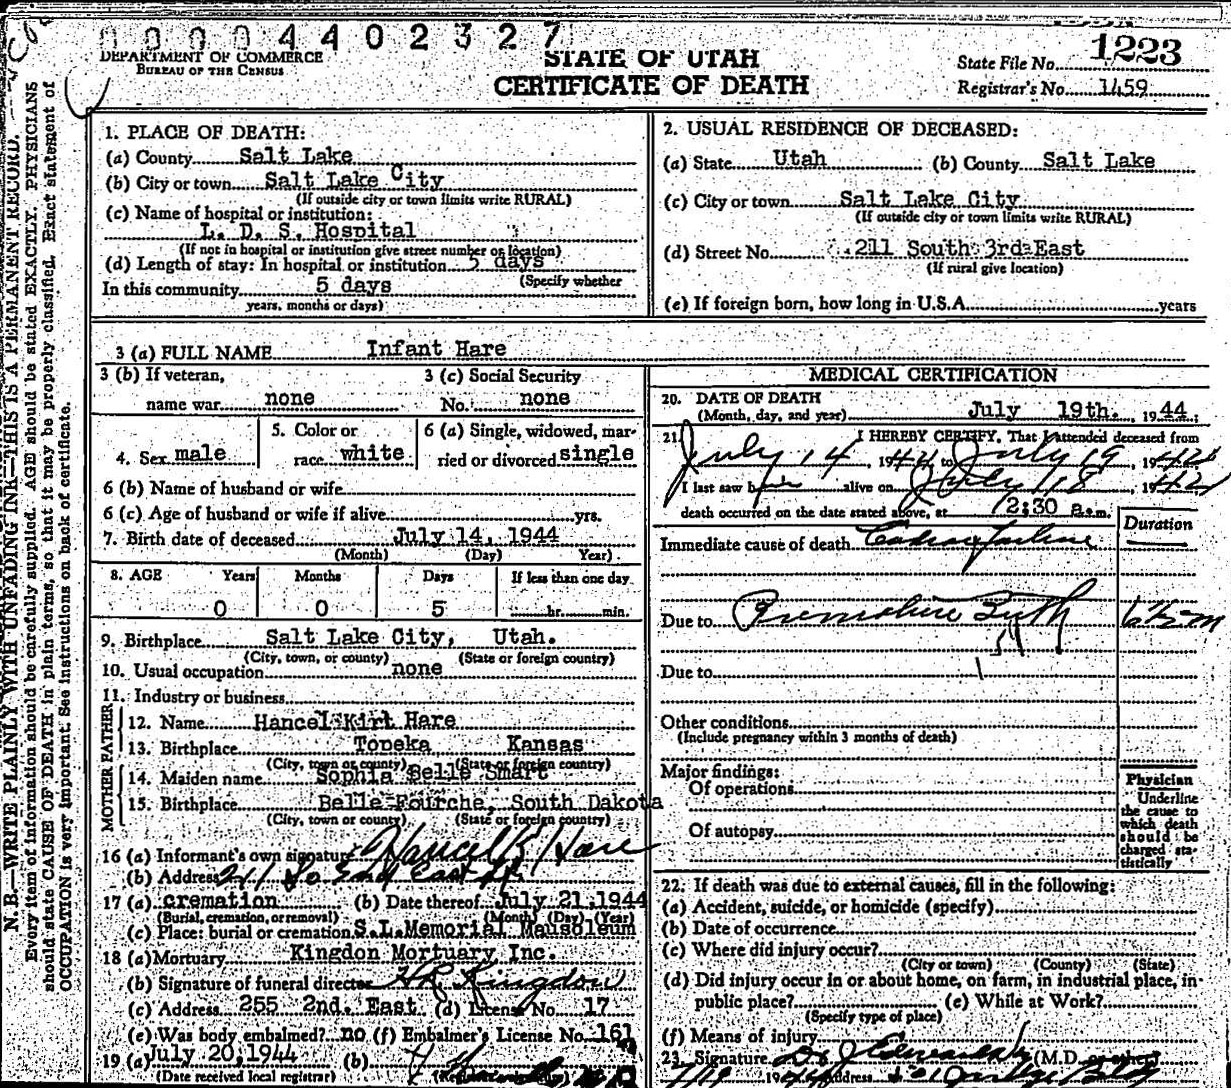 00004402327
DEPARTMENT OF COMMERCE
BUREAU OF THE CENSUS
STATE OF UTAH
CERTIFICATE OF DEATH
State File No. 1223
Registrar's No. 1459
N. B.—WRITE PLAINLY WITH UNFADING INK—THIS IS A PERMANENT RECORD.
Every item of information should be carefully supplied. AGE should be stated EXACTLY. PHYSICIANS
should state CAUSE OF DEATH in plain terms, so that it may be properly classified. Exact statement of
OCCUPATION is very important. See instructions on back of certificate.
1. PLACE OF DEATH:
(a) County Salt Lake
(b) City or town Salt Lake City
(If outside city or town limits write RURAL)
(c) Name of hospital or institution:
L. D. S. Hospital
(If not in hospital or institution give street number or location)
(d) Length of stay: In hospital or institution 5 days
(Specify whether
In this community 5 days
years, months or days)
2. USUAL RESIDENCE OF DECEASED:
(a) State Utah (b) County Salt Lake
(c) City or town Salt Lake City
(If outside city or town limits write RURAL)
(d) Street No. 211 South 3rd East
(If rural give location)
(e) If foreign born, how long in U.S.A. years
3 (a) FULL NAME Infant Hare
3 (b) If veteran,
name war none
3 (c) Social Security
No. none
4. Sex male
5. Color or
race white
6 (a) Single, widowed, mar-
ried or divorced single
6 (b) Name of husband or wife
6 (c) Age of husband or wife if alive yrs.
7. Birth date of deceased July 14, 1944
(Month) (Day) Year)
8. AGE Years Months Days If less than one day
0 0 5 hr. min.
9. Birthplace Salt Lake City, Utah.
(City, town, or county) (State or foreign country)
10. Usual occupation none
11. Industry or business
FATHER
12. Name Hancel Kirt Hare
13. Birthplace Topeka Kansas
(City, town or county) (State or foreign country)
MOTHER
14. Maiden name Sophia Belle Smart
15. Birthplace Belle Fourche, South Dakota
(City, town or county) (State or foreign country)
16 (a) Informant's own signature Hancel K Hare
(b) Address 211 So East
17 (a) cremation (b) Date thereof July 21, 1944
(Burial, cremation, or removal) (Month) (Day) (Year)
(c) Place: burial or cremation S.L. Memorial Mausoleum
18 (a) Mortuary Kingdon Mortuary Inc.
(b) Signature of funeral director H R Kingdon
(c) Address 255 2nd. East (d) License No. 17
(e) Was body embalmed? no (f) Embalmer's License No. 161
19 (a) July 20, 1944 (b)
(Date received local registrar)
MEDICAL CERTIFICATION
20. DATE OF DEATH
(Month, day, and year) July 19th. , 1944
21. I HEREBY CERTIFY, That I attended deceased from
July 14, 1944 to July 19, 1944
I last saw h alive on July 18, 1944
death occurred on the date stated above, at 2:30 a.m.
Duration
Immediate cause of death Failure
Due to Premature Birth 6½ m
159
Due to
Other conditions
(Include pregnancy within 3 months of death)
Major findings:
Of operations
Of autopsy
Physician
Underline
the cause to
which death
should be
charged sta-
tistically
22. If death was due to external causes, fill in the following:
(a) Accident, suicide, or homicide (specify)
(b) Date of occurrence
(c) Where did injury occur?
(City or town) (County) (State)
(d) Did injury occur in or about home, on farm, in industrial place, in
public place? (e) While at Work?
(Specify type of place)
(f) Means of injury
23. Signature Dr J Edward (M.D. or other)
7/19 1944 Address